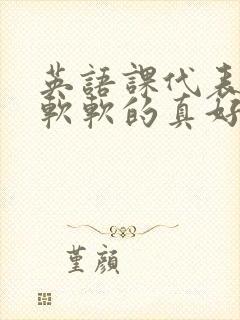 英語課代表
軟軟的真好
堇顏